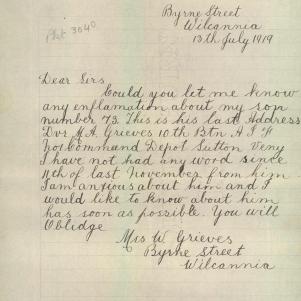 Byrne Street
Wilcannia
13th July 1919
Dear Sirs,
Could you let me know
any enflamation about my son
number 73. This is his last Address
Dvr M.A. Grieves 10th Btn A I F
No 1 Command Depot Sutton Veny
I have not had any word since
11th of last November from him
I am antious about him and I
would like to know about him
has soon as possible. You will
Oblidge
Mrs W Grieves
Byrne Street
Wilcannia